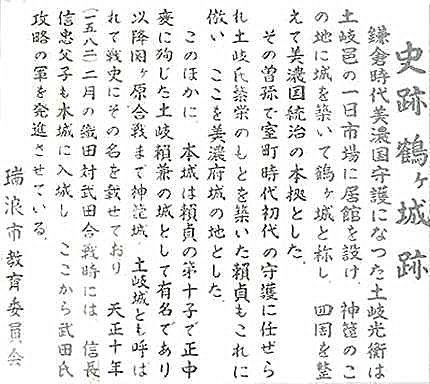 史跡 鶴ヶ城跡
鎌倉時代美濃国守護になつた土岐光衡は
土岐邑の一日市場に居館を設け、神箆のこ
の地に城を築いて鶴ヶ城と称し、四囲を整
えて美濃国統治の本拠とした。
その曽孫で室町時代初代の守護に任ぜら
れ土岐氏繁栄のもとを築いた頼貞もこれに
倣い ここを美濃府城の地とした。
このほかに 本城は頼貞の第十子で正中
変に殉じた土岐頼兼の城として有名であり
以降関ヶ原合戦まで神箆城、土岐城とも呼ば
れて戦史にその名を載せており 天正十年
(一五八二)二月の織田対武田合戦時には 信長
信忠父子も本城に入城し ここから武田氏
攻略の軍を発進させている。
瑞浪市教育委員会